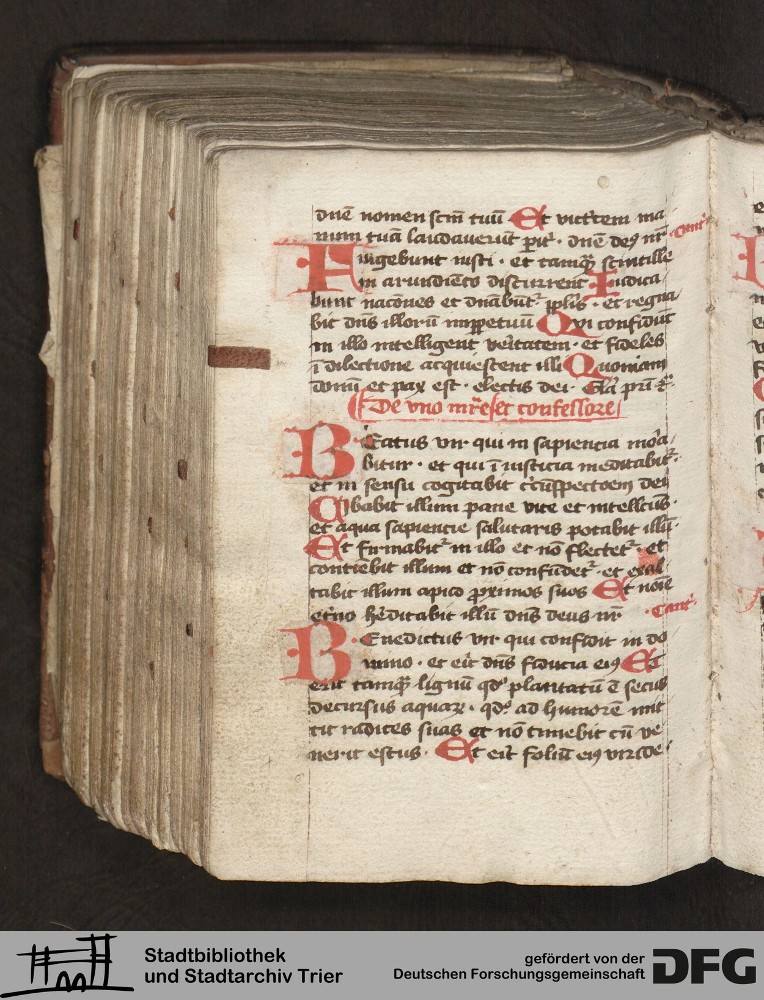 dnē nomen scm̄ tuū Et vict'cem ma
num tuā laudaverūt pit'. dnē deꝰ nr̄ Cant'
Fulgebunt iusti. et tamqͣ scintille
in arundineto discurrent Iudica
bunt nacōnes et dnābūtʳ pplis. et regna
bit dns illorū inppetuū Qui confidūt
in illo intelligent veritatem. et fideles
ī dilectione acquiescent illi Quoniam
donū et pax est. electis dei. Gla pri
De vno mr̄e et confessore
Beatus vir qui in sapiencia mora
bitur. et qui ī iusticia meditabitʳ.
et in sensu cogitabit cc̄ūspectoem dei
Cibabit illum pane vite et intellcūs.
et aqua sapiencie salutaris potabit illū.
Et firmabitʳ in illo et nō flectetʳ. et
contiebit illum et nō confūdetʳ. et exal
tabit illum apud proximos suos Et noīe
et'no he'ditabit illū dns deus nr̄ Cant'
Benedictus vir qui confidit in do
mino. et eit dns fiducia eiꝰ Et
erit tamqͣ lignū qd' plantatū ē secus
decursus aquaꝝ. qd' ad humorē mit
tit radices suas et nō timebit cū ve
nerit estus. Et eit foliū eiꝰ viride
Stadtbibliothek
und Stadtarchiv Trier
gefördert von der
Deutschen Forschungsgemeinschaft
DFG